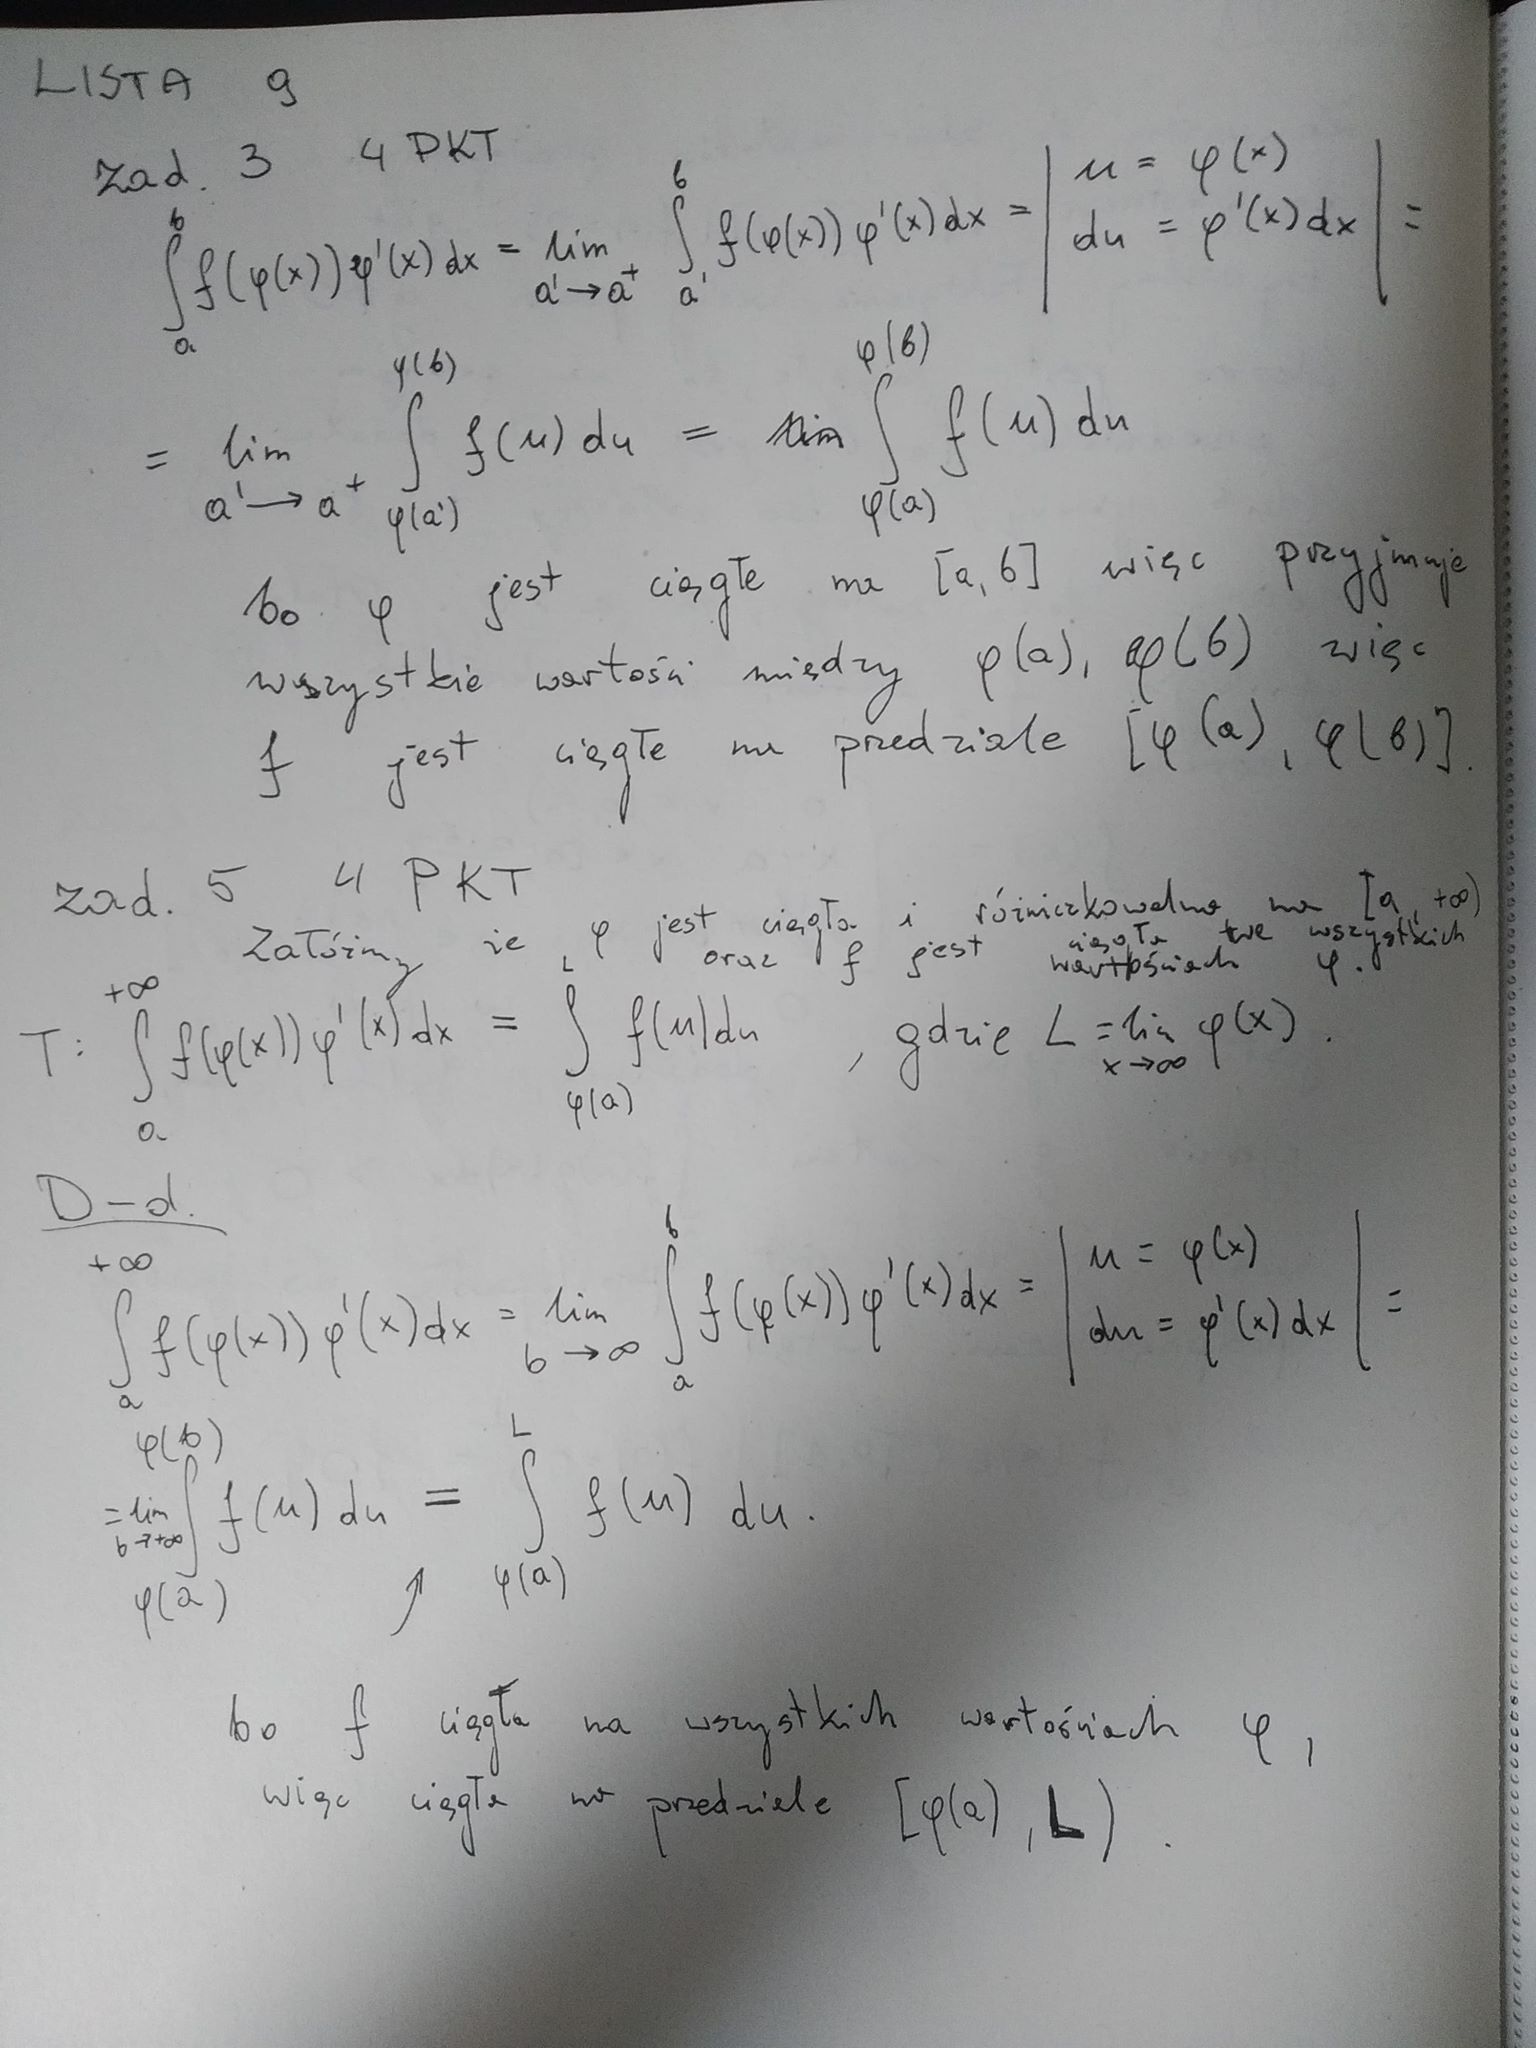 LISTA 9
Zad. 3 4 PKT
∫_a^b f(φ(x)) φ'(x) dx = lim_{a'→a⁺} ∫_{a'}^b f(φ(x)) φ'(x) dx = | u = φ(x) du = φ'(x) dx | =
= lim_{a'→a⁺} ∫_{φ(a')}^{φ(b)} f(u) du = ∫_{φ(a)}^{φ(b)} f(u) du
bo φ jest ciągłe na [a, b] więc przyjmuje
wszystkie wartości między φ(a), φ(b) więc
f jest ciągłe na przedziale [φ(a), φ(b)].
Zad. 5 4 PKT
Załóżmy że φ jest ciągła i różniczkowalna na [a, +∞)
oraz f jest ciągła we wszystkich
wartościach φ.
T: ∫_a^{+∞} f(φ(x)) φ'(x) dx = ∫_{φ(a)}^L f(u) du , gdzie L = lim_{x→∞} φ(x).
D-d.
∫_a^{+∞} f(φ(x)) φ'(x) dx = lim_{b→∞} ∫_a^b f(φ(x)) φ'(x) dx = | u = φ(x) du = φ'(x) dx | =
= lim_{b→+∞} ∫_{φ(a)}^{φ(b)} f(u) du = ∫_{φ(a)}^L f(u) du.
↗
bo f ciągła na wszystkich wartościach φ,
więc ciągła na przedziale [φ(a), L).